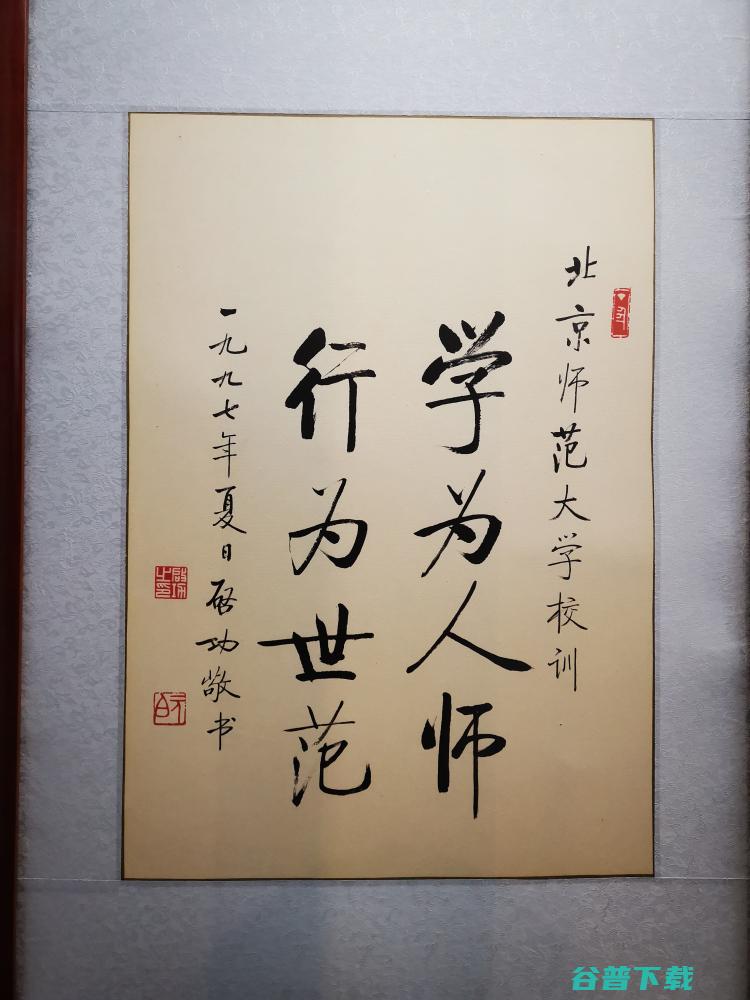 北京师范大学校训
学为人师
行为世范
一九九七年夏日启功敬书
谷普下载